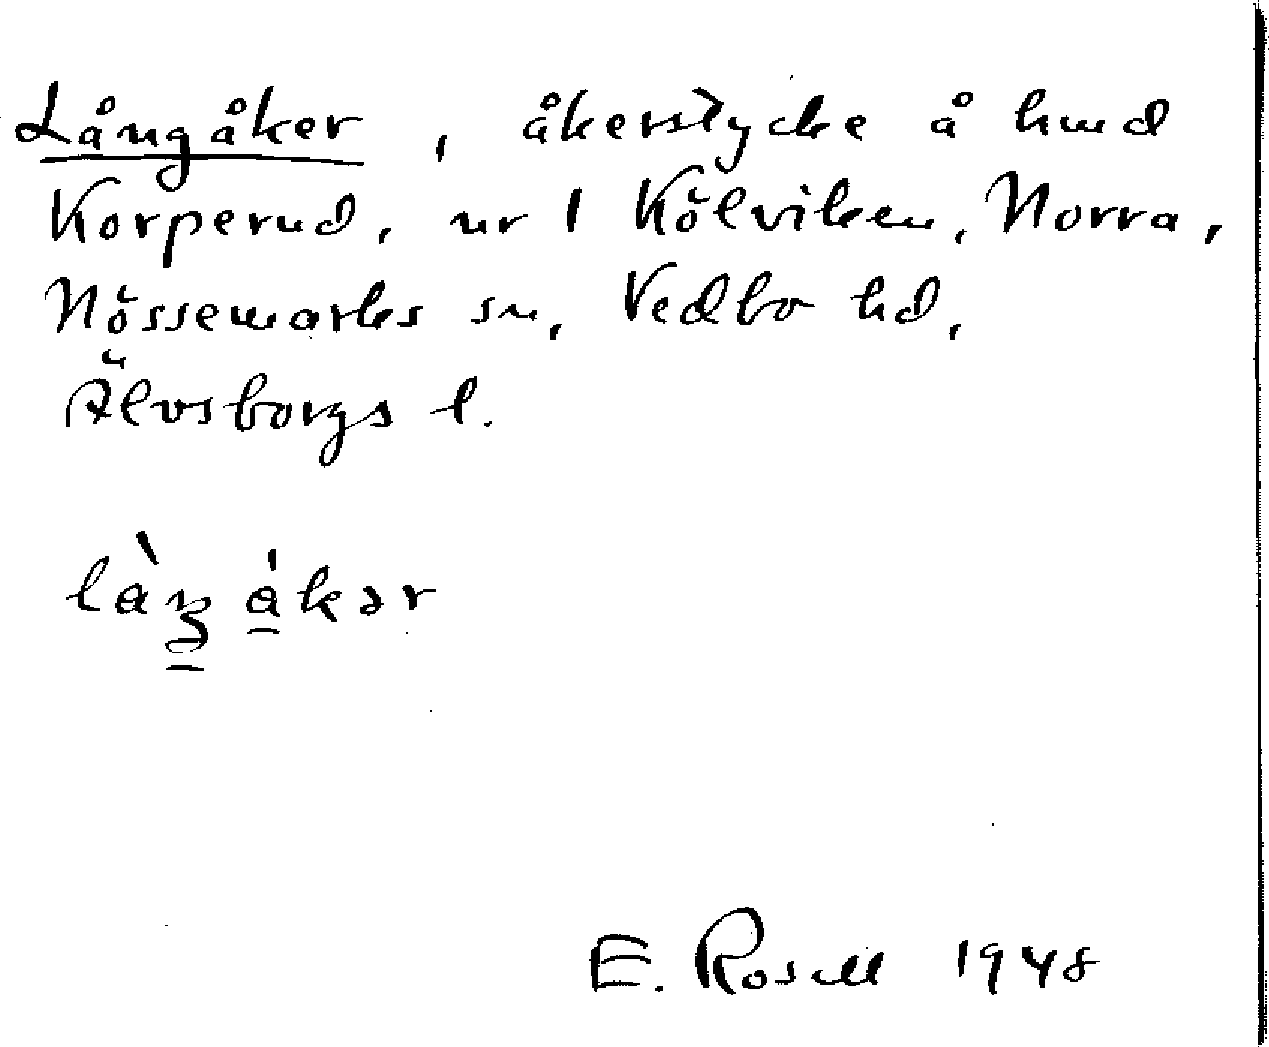 Långåker, åkerstycke å hmd
Korperud, ur 1 Kölviken, Norra,
Nössemarks sn, Vedbo hd,
Älvsborgs l.
E. Rosell 1948